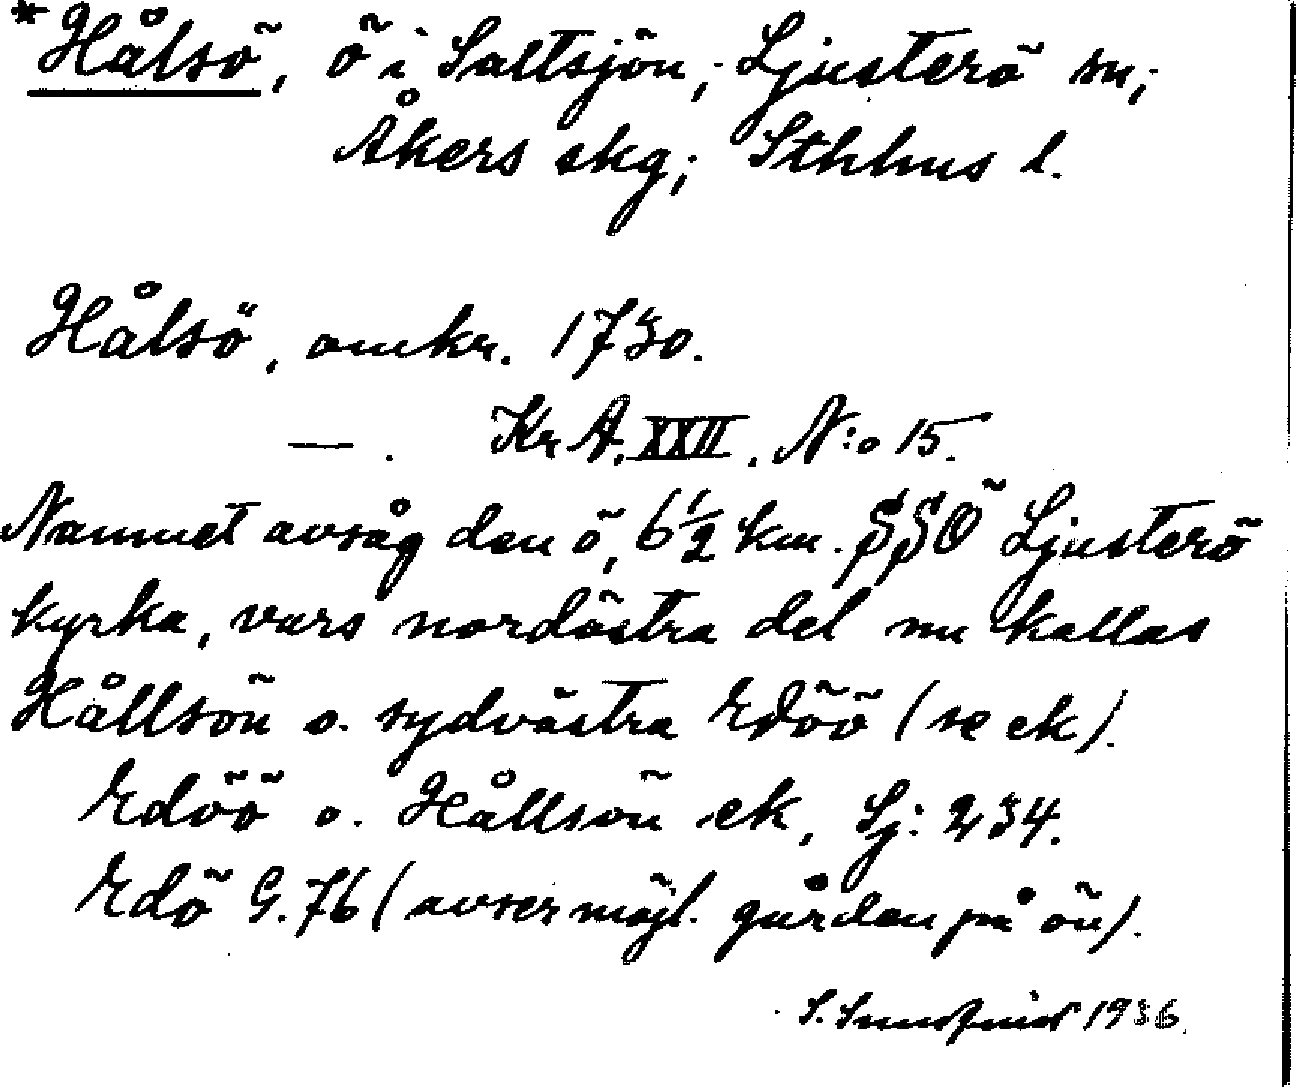 *Hålsö, ö i Saltsjön; Ljusterö sn;
Åkers skg; Sthlms l.
Hålsö, omkr. 1730.
— . KrA. XXII. N:o 15.
Namnet avsåg den ö, 6½ km. SSÖ Ljusterö
kyrka, vars nordöstra del nu kallas
Hållsön o. sydvästra Edöö (se ek).
Edöö o. Hållsön ek, Sj: 234.
Edö G. 76 (avser möjl. gården på ön).
S. 1936.